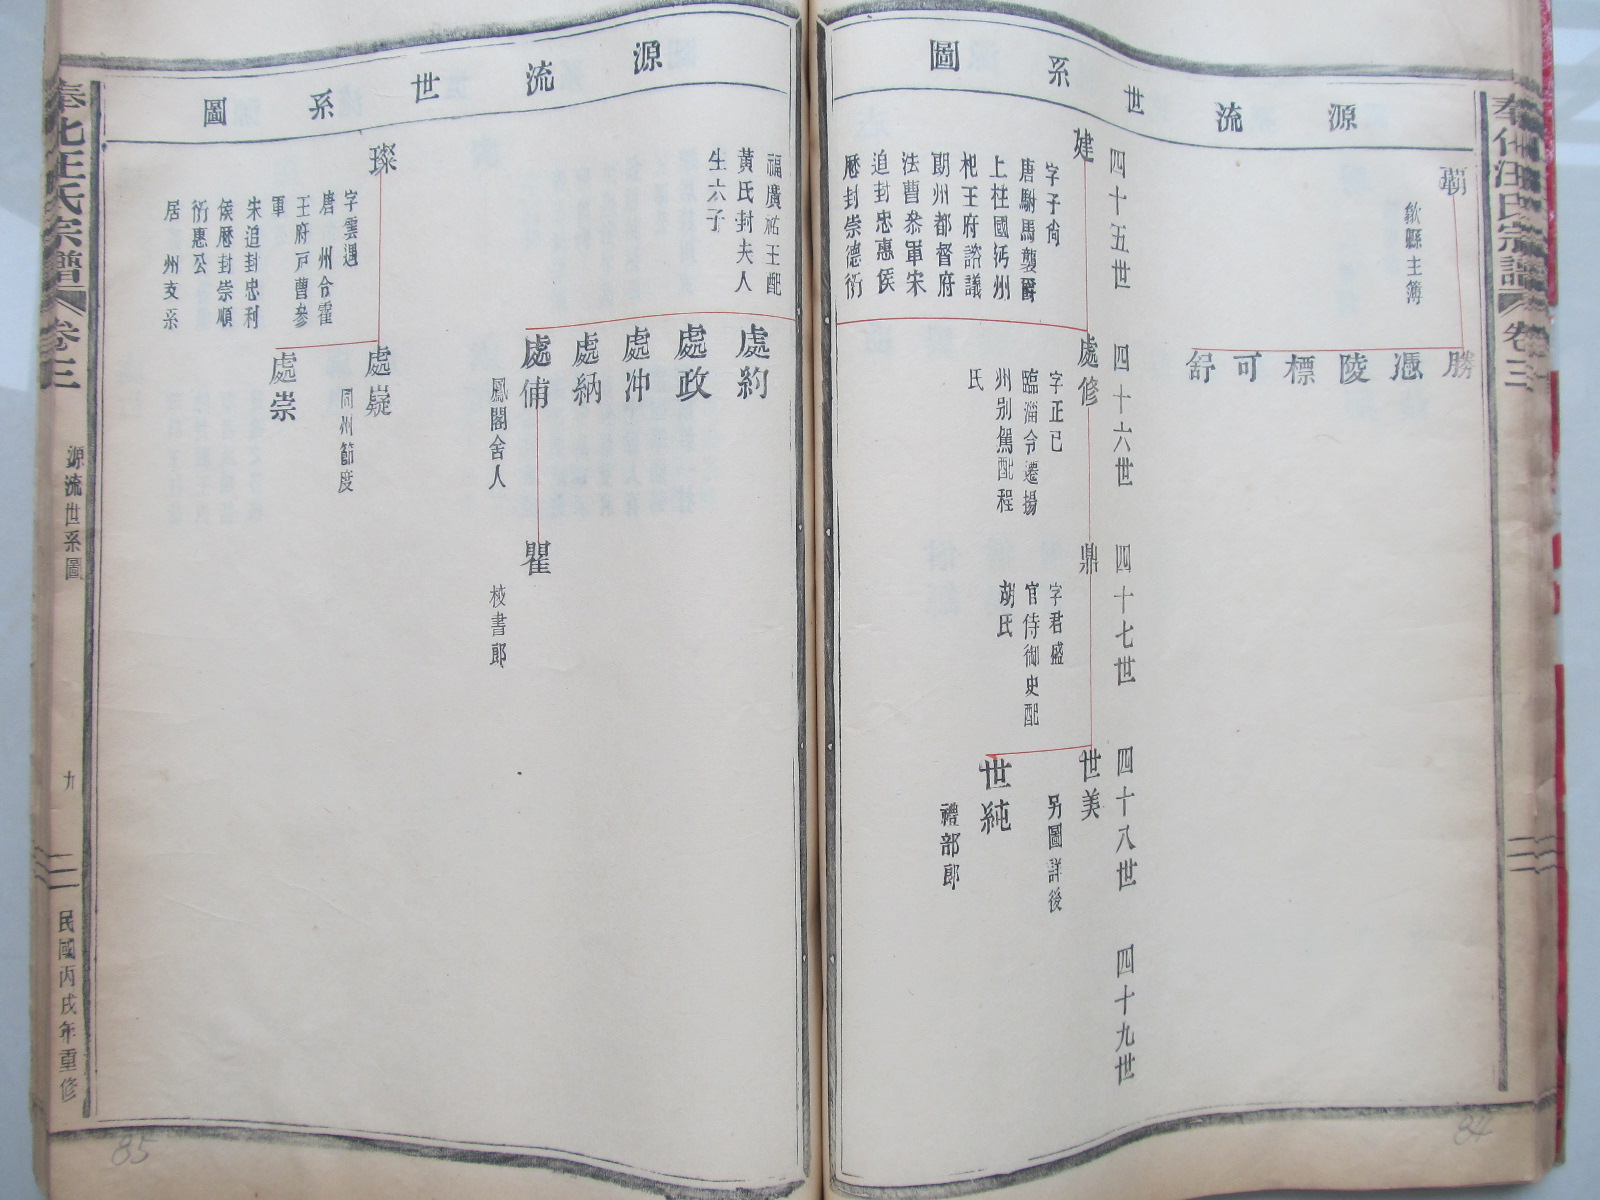 奉化汪氏宗譜
卷三
源流世系圖
霸
歙縣主簿
勝
憑
陵
標
可
舒
四十五世
四十六世
四十七世
四十八世
四十九世
建
字子尙
唐駙馬襲爵
上柱國沔州
𣏌王府諮議
朗州都督府
法曹叅軍宋
追封忠惠侯
歷封崇德衍
處修
字正已
臨淄令遷揚
州别駕配程
氏
鼎
字君盛
官侍御史配
胡氏
世美
另圖詳後
世純
禮部郎
84
源流世系圖
福廣祐王配
黃氏封夫人
生六子
處約
處政
處冲
處納
處俌
鳳閣舍人
瞿
校書郎
璨
字雲遇
唐 州令霍
王府戸曹參
軍
宋追封忠利
侯歷封崇順
衍惠公
居 州支系
處嶷
同州節度
處崇
奉化汪氏宗譜
卷三
源流世系圖
九
民國丙戌年重修
85